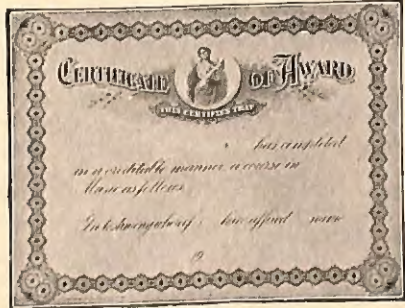 CERTIFICATE OF AWARD
THIS CERTIFIES THAT
has completed
in a creditable manner a course in
Music as follows
In testimony whereof I have affixed my name
19